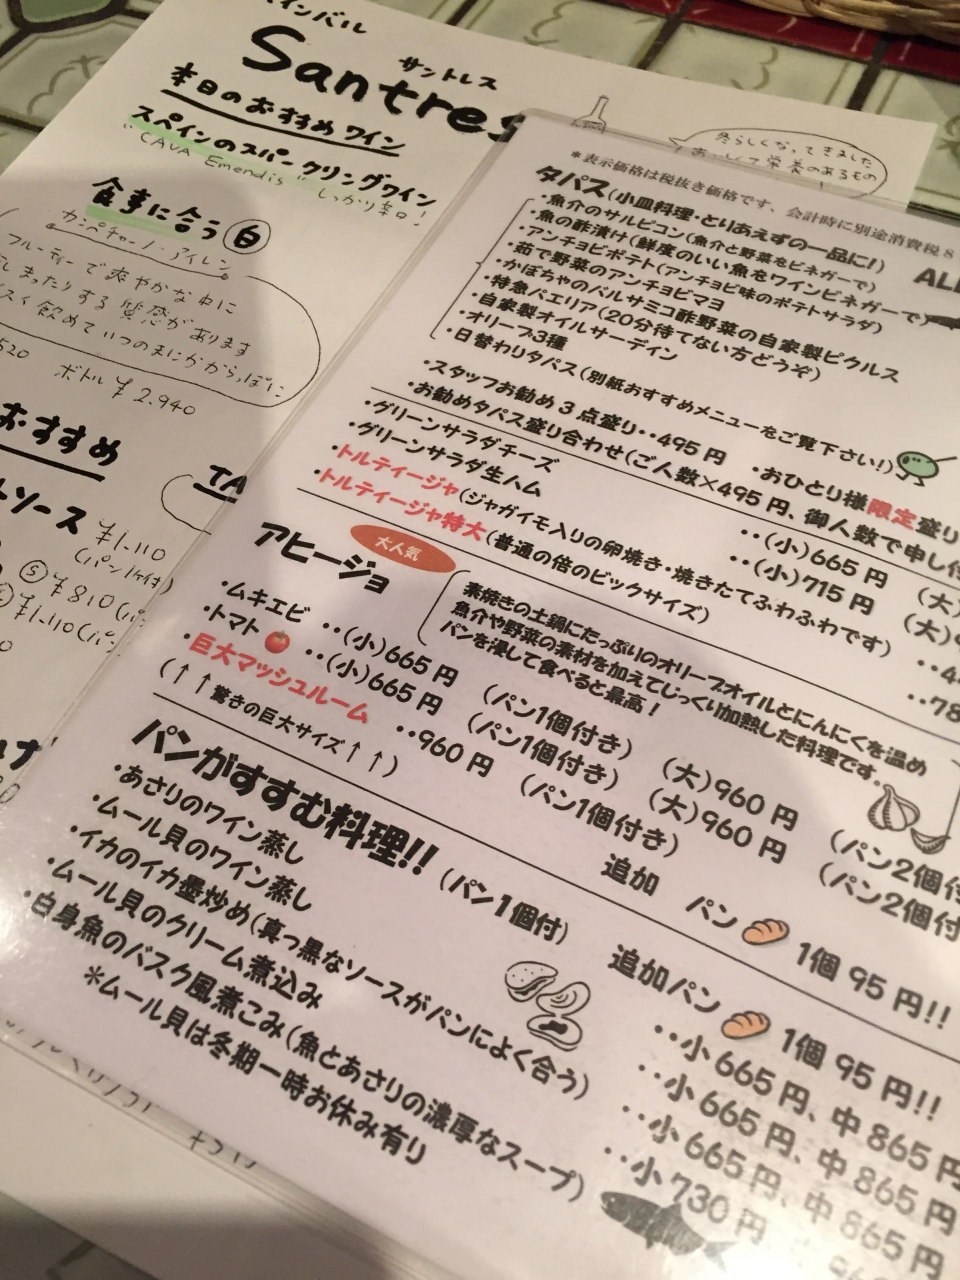 インバル
サントレス
Santres
本日のおすすめワイン
スペインのスパークリングワイン
"CAVA Emendis" しっかり辛口!
食事に合う 白
カンペチャーノ・アイレン
フルーティーで爽やかな中に
まったりする質感があります
スイスイ飲めていつのまにかからっぽに
520
ボトル ¥2.940
おすすめ
TA
トソース ¥1.110
(パン1ケ付)
S ¥810(パ
¥1.110(パ
冬らしくなってきました
おいしくて栄養のあるもの
*表示価格は税抜き価格です、会計時に別途消費税8
タパス(小皿料理・とりあえずの一品に!)
ALL
・魚介のサルピコン(魚介と野菜をビネガーで)
・魚の酢漬け(鮮度のいい魚をワインビネガーで)
・アンチョビポテト(アンチョビ味のポテトサラダ)
・茹で野菜のアンチョビマヨ
・かぼちゃのバルサミコ酢野菜の自家製ピクルス
・特急パエリア(20分待てない方どうぞ)
・自家製オイルサーディン
・オリーブ3種
・日替わりタパス(別紙おすすめメニューをご覧下さい!)
・スタッフお勧め3点盛り・・495円 ・おひとり様限定盛り
・お勧めタパス盛り合わせ(ご人数×495円、御人数で申し付
・グリーンサラダチーズ ・・(小)665円 (大)
・グリーンサラダ生ハム ・・(小)715円 (大)
・トルティージャ(ジャガイモ入りの卵焼き・焼きたてふわふわです) ・・4
・トルティージャ特大(普通の倍のビックサイズ) ・・78
アヒージョ 大人気
素焼きの土鍋にたっぷりのオリーブオイルとにんにくを温め
魚介や野菜の素材を加えてじっくり加熱した料理です。
パンを浸して食べると最高!
・ムキエビ ・・(小)665円 (パン1個付き) (大)960円 (パン2個付
・トマト ・・(小)665円 (パン1個付き) (大)960円 (パン2個付
・巨大マッシュルーム ・・960円 (パン1個付き)
(↑↑驚きの巨大サイズ↑↑)
追加 パン 1個 95円!!
パンがすすむ料理!! (パン1個付) 追加パン 1個 95円!!
・あさりのワイン蒸し ・・小665円、中865円
・ムール貝のワイン蒸し ・・小665円、中865円
・イカのイカ墨炒め(真っ黒なソースがパンによく合う) ・・小665円、中865円
・ムール貝のクリーム煮込み ・・小730円
・白身魚のバスク風煮こみ(魚とあさりの濃厚なスープ)
*ムール貝は冬期一時お休み有り